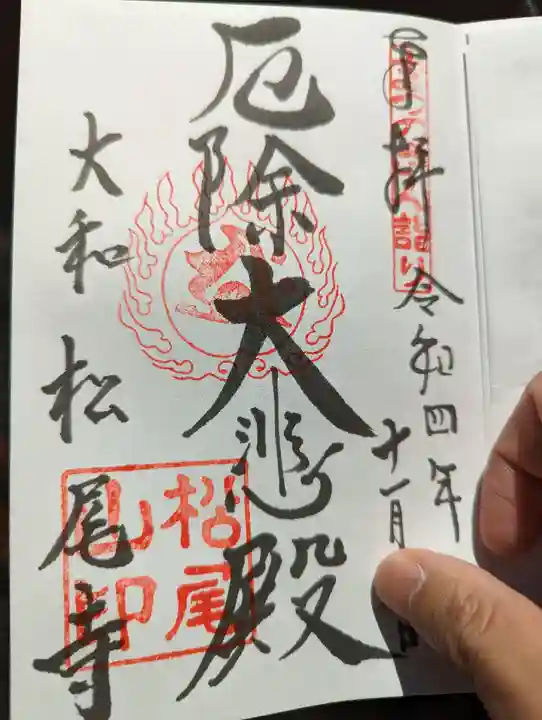 奉拝
令和四年
十一月
厄除
大悲殿
大和 松尾寺
松尾
山印